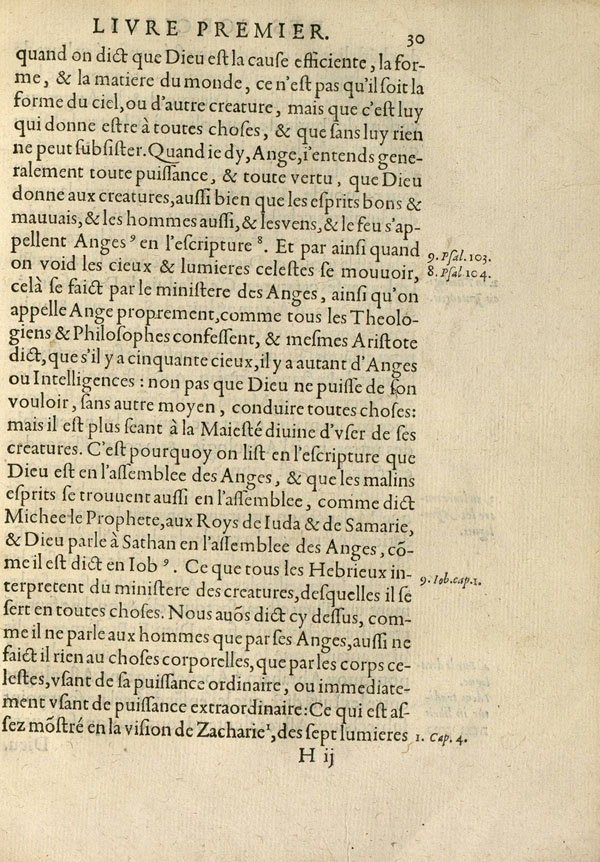 LIVRE PREMIER.
30
quand on dict que Dieu eſt la cauſe efficiente, la for-
me, & la matiere du monde, ce n'eſt pas qu'il ſoit la
forme du ciel, ou d'autre creature, mais que c'eſt luy
qui donne eſtre à toutes choſes, & que ſans luy rien
ne peut ſubſiſter. Quand ie dy, Ange, i'entends gene-
ralement toute puiſſance, & toute vertu, que Dieu
donne aux creatures, auſſi bien que les eſprits bons &
mauuais, & les hommes auſſi, & les vens, & le feu s'ap-
pellent Anges ⁹ en l'eſcripture ⁸. Et par ainſi quand
9. Pſal. 103.
on void les cieux & lumieres celeſtes ſe mouuoir,
8. Pſal 104.
celà ſe faict par le miniſtere des Anges, ainſi qu'on
appelle Ange proprement, comme tous les Theolo-
giens & Philoſophes confeſſent, & meſmes Ariſtote
dict, que s'il y a cinquante cieux, il y a autant d'Anges
ou Intelligences : non pas que Dieu ne puiſſe de ſon
vouloir, ſans autre moyen, conduire toutes choſes:
mais il eſt plus ſeant à la Maieſté diuine d'vſer de ſes
creatures. C'eſt pourquoy on liſt en l'eſcripture que
Dieu eſt en l'aſſemblee des Anges, & que les malins
eſprits ſe trouuent auſſi en l'aſſemblee, comme dict
Michee le Prophete, aux Roys de Iuda & de Samarie,
& Dieu parle à Sathan en l'aſſemblee des Anges, cõ-
me il eſt dict en Iob ⁹. Ce que tous les Hebrieux in-
9. Iob. cap. 1.
terpretent du miniſtere des creatures, deſquelles il ſe
ſert en toutes choſes. Nous auõs dict cy deſſus, com-
me il ne parle aux hommes que par ſes Anges, auſſi ne
faict il rien au choſes corporelles, que par les corps ce-
leſtes, vſant de ſa puiſſance ordinaire, ou immediate-
ment vſant de puiſſance extraordinaire: Ce qui eſt aſ-
ſez mõſtré en la viſion de Zacharie¹, des ſept lumieres
1. Cap. 4.
H ij